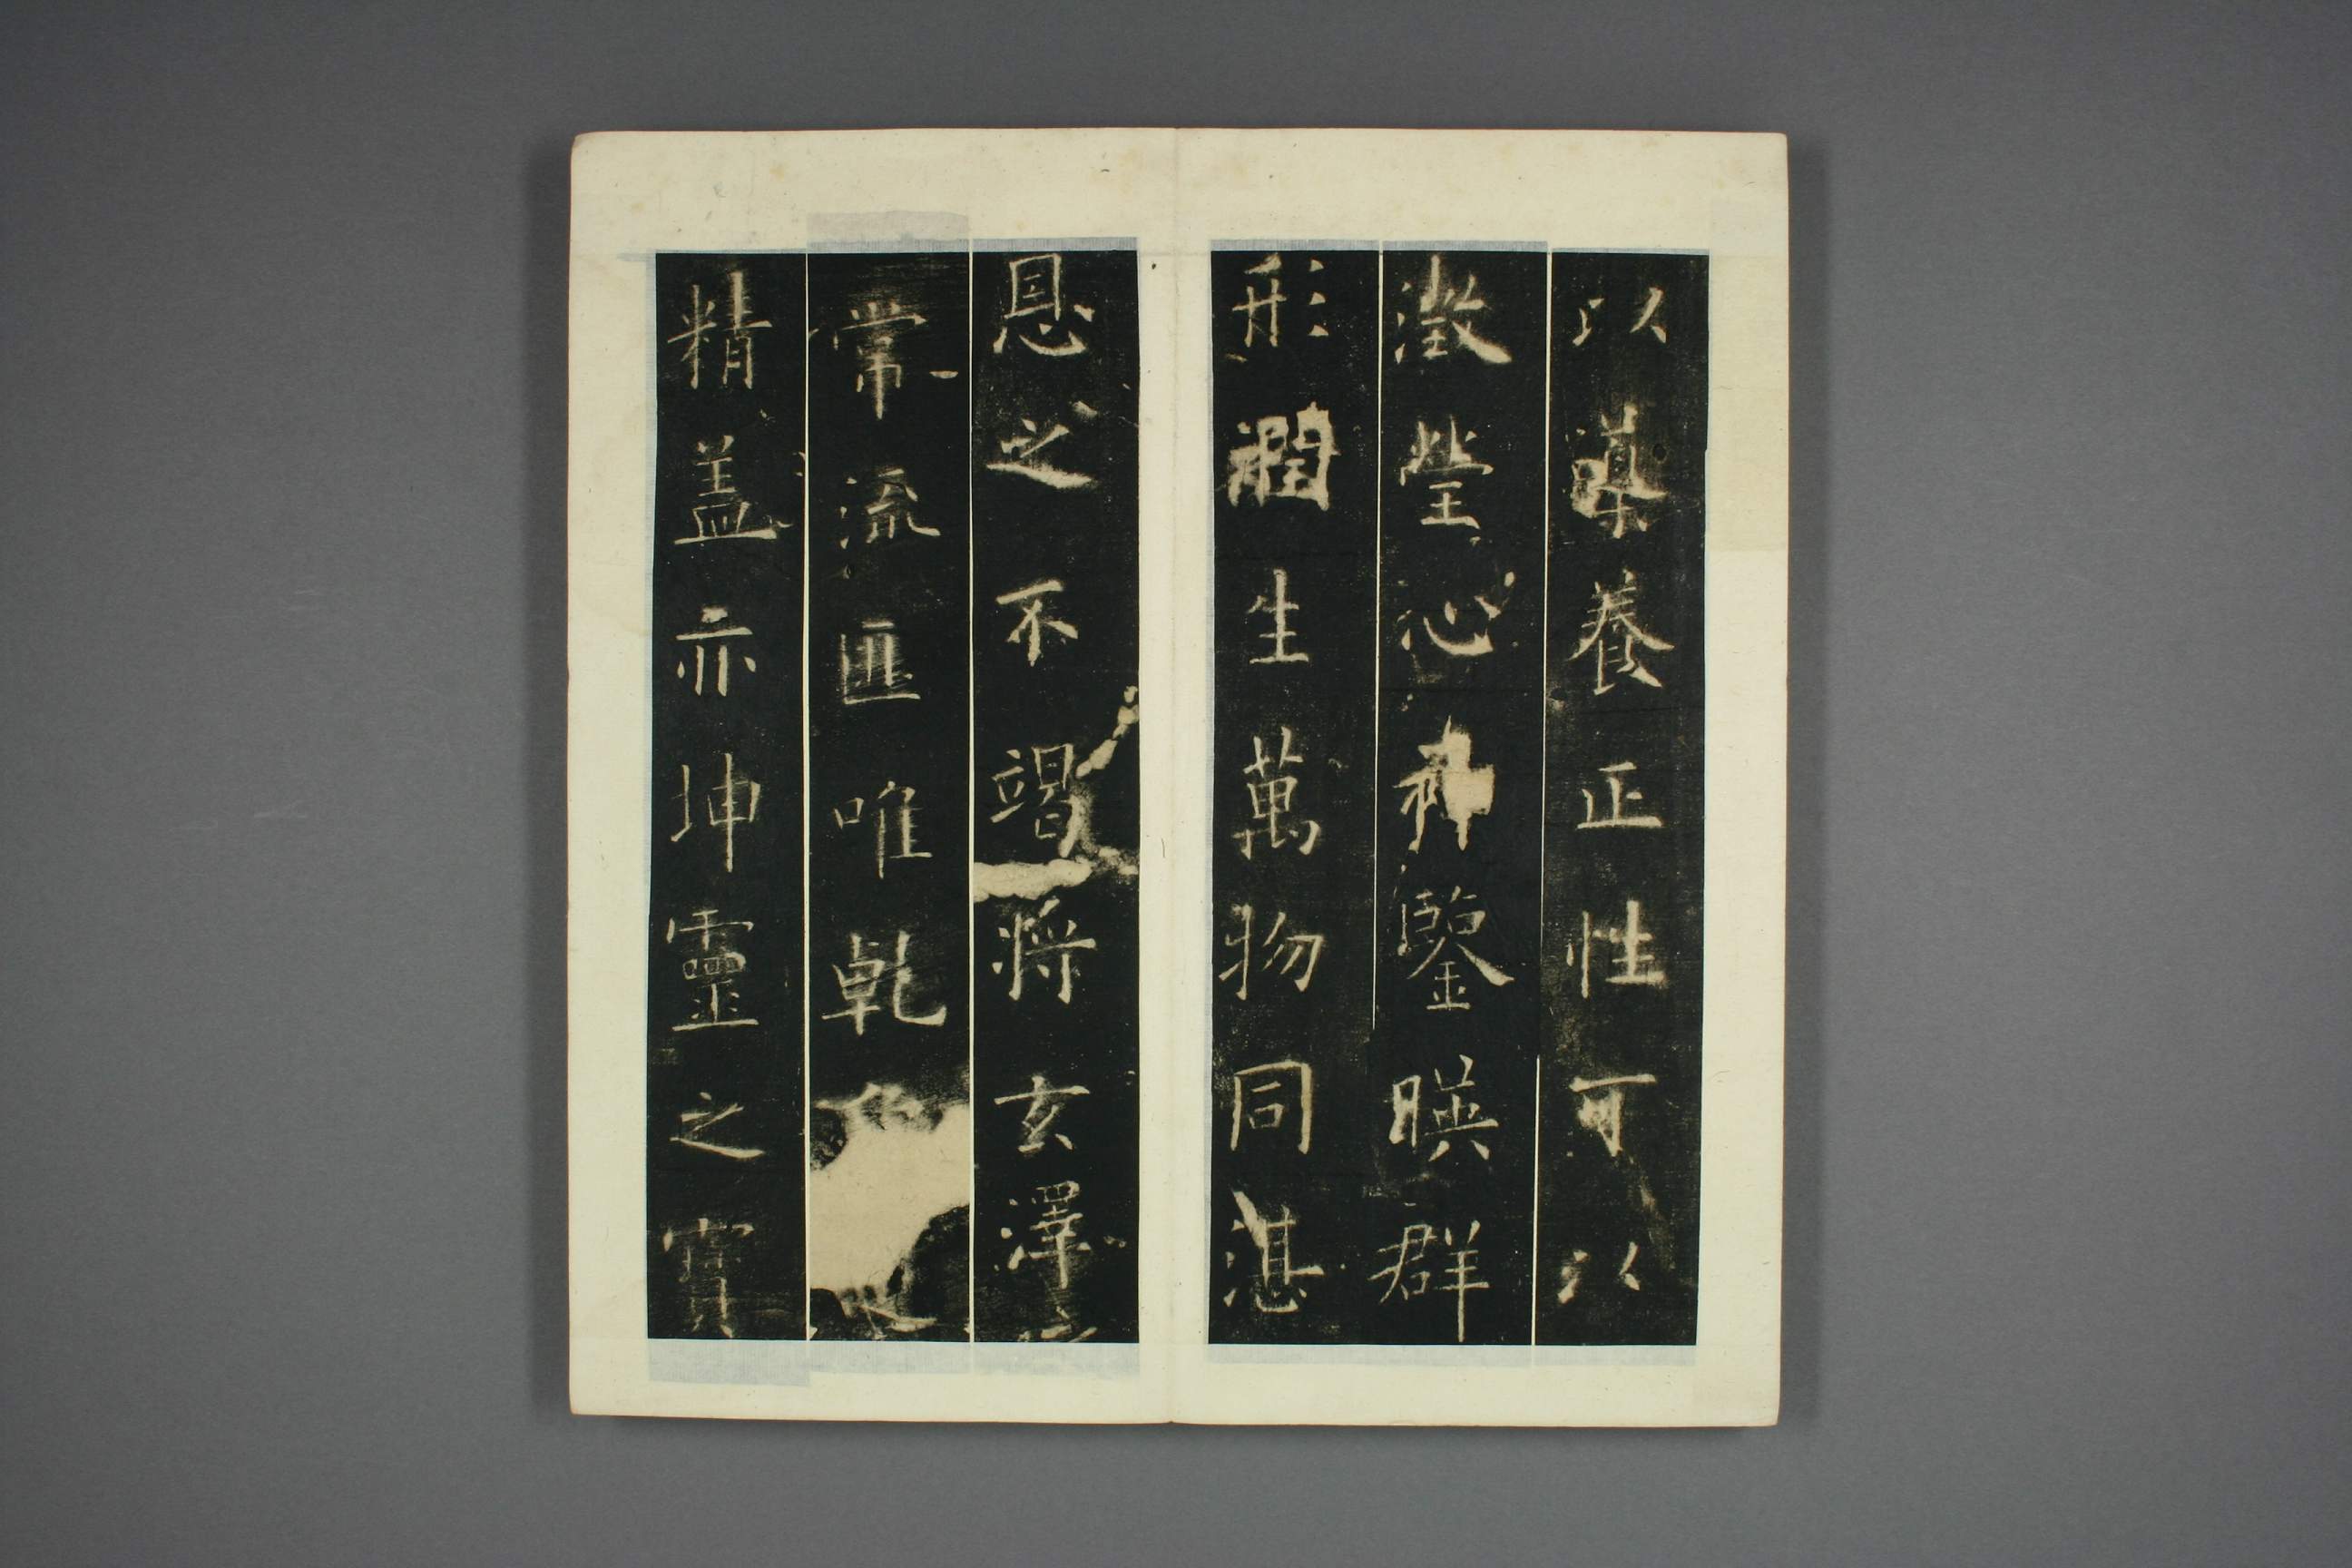 以導養正性可以
澂瑩心神鑒暎群
形潤生萬物同湛
恩之不竭將玄澤
常流匪唯乾
精盖亦坤靈之寶